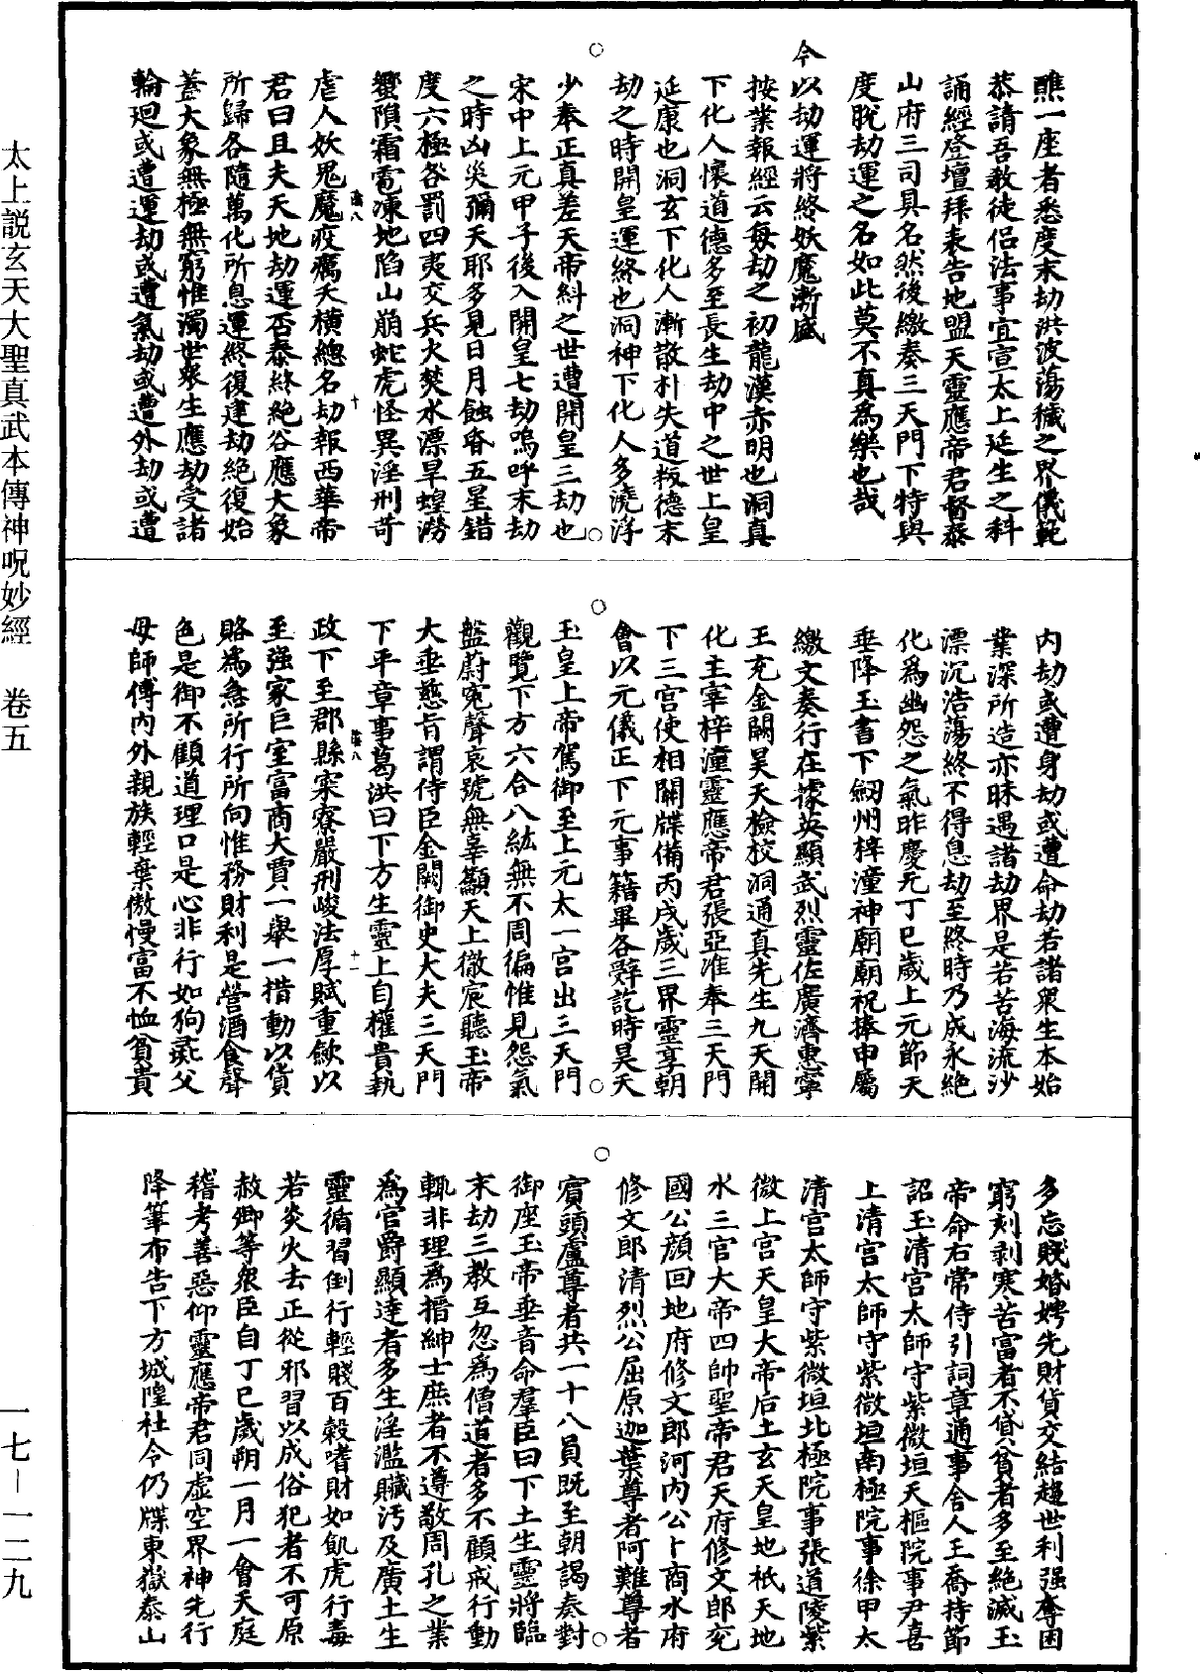 醮一座者悉度末劫洪波蕩穢之界儀範
恭請吾教徒侣法事宜宣太上延生之科
誦經登壇拜表告地盟天靈應帝君督泰
山府三司具名然後繳奏三天門下特與
度脫劫運之名如此莫不真為樂也哉
今以劫運將終妖魔漸盛
按業報經云每劫之初龍漢赤明也洞真
下化人懷道德多至長生劫中之世上皇
延康也洞玄下化人漸散朴失道叛德末
劫之時開皇運終也洞神下化人多澆浮
少奉正真差天帝糾之世遭開皇三劫也
宋中上元甲子後入開皇七劫嗚呼末劫
之時凶災彌天耶多見日月蝕昏五星錯
度六極各罰四夷交兵火焚水漂旱蝗澇
蠒隕霜雹凍地陷山崩蛇虎怪異淫刑苛
虐人妖鬼魔疫癘夭橫總名劫報西華帝
君曰且夫天地劫運否泰終絕谷應大象
所歸各隨萬化所息運終復建劫絕復始
蓋大象無極無窮惟濁世衆生應劫受諸
輪廻或遭運劫或遭氣劫或遭外劫或遭
内劫或遭身劫或遭命劫若諸衆生本始
業深所造亦昧遇諸劫界是若苦海流沙
漂沉浩蕩終不得息劫至終時乃成永絕
化為幽怨之氣昨慶元丁巳歲上元節天
垂降玉書下劔州梓潼神廟廟祝捧申屬
繳文奏行在據英顯武烈靈佐廣濟惠寧
王充金闕昊天檢校洞通真先生九天開
化主宰梓潼靈應帝君張亞准奉三天門
下三宫使相關牒備丙戌歲三界靈享朝
會以元儀正下元事籍畢各辭訖時昊天
玉皇上帝駕御至上元太一宫出三天門
觀覽下方六合八紘無不周徧惟見怨氣
盤蔚寃聲哀號無辜籲天上徹宸聽玉帝
大垂慈旨謂侍臣金闕御史大夫三天門
下平章事葛洪曰下方生靈上自權貴執
政下至郡縣寀寮嚴刑峻法厚賦重歛以
至强家巨室富商大賈一舉一措動以貨
賂為急所行所向惟務財利是營酒食聲
色是御不顧道理口是心非行如狗彘父
母師傅内外親族輕棄傲慢富不恤貧貴
多忘賤婚娉先財貨交結趍世利强奪困
窮刻剥寒苦富者不貸貧者多至絕滅玉
帝命右常侍引詞章通事舍人王喬持節
詔玉清宫太師守紫微垣天樞院事尹喜
上清宫太師守紫微垣南極院事徐甲太
清宫太師守紫微垣北極院事張道陵紫
微上宫天皇大帝后土玄天皇地祇天地
水三官大帝四帥聖帝君天府修文郎兖
國公顔回地府修文郎河内公卜商水府
修文郎清烈公屈原迦葉尊者阿難尊者
賓頭盧尊者共一十八員既至朝謁奏對
御座玉帝垂音命羣臣曰下土生靈將臨
末劫三教互忽為僧道者多不顧戒行動
輒非理為搢紳士庶者不遵敬周孔之業
為官爵顯達者多生淫濫贓汚及廣土生
靈循習倒行輕賤百榖嗜財如飢虎行毒
若炎火去正從邪習以成俗犯者不可原
赦卿等衆臣自丁巳歲朔一月一會天庭
稽考善惡仰靈應帝君同虚空界神先行
降筆布告下方城隍社令仍牒東嶽泰山
太上説玄天大聖真武本傳神呪妙經　卷五
一七－一二九